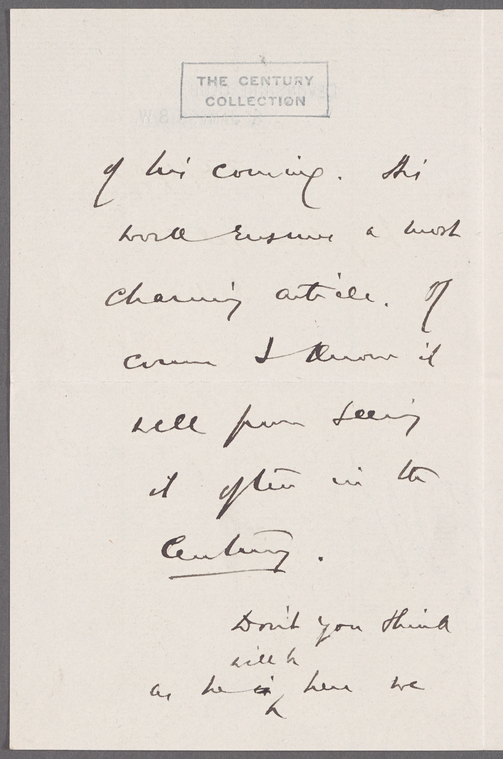 THE CENTURY
COLLECTION
of his coming. His
work ensures a most
charming article. Of
course I know it
well from seeing
it often in the
Century.
Don't you think
will be
as he is here we